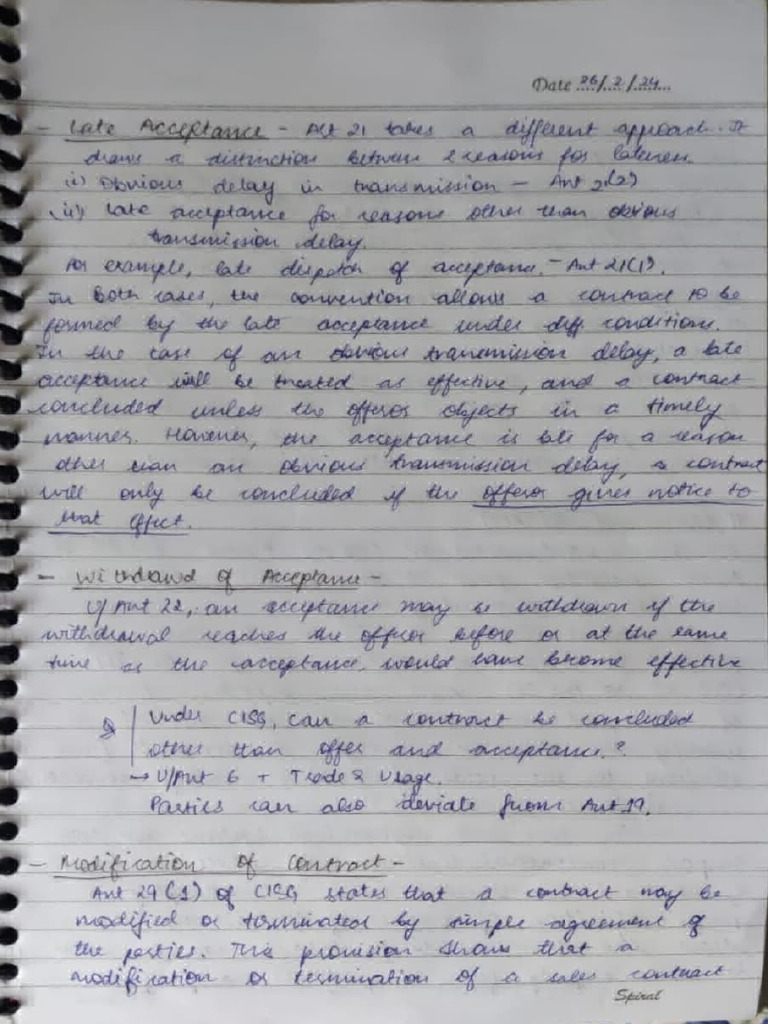 Date 26/2/24
- Late Acceptance - Art 21 takes a different approach. It
draws a distinction between 2 reasons for lateness.
(i) Obvious delay in transmission - Art 21(2)
(ii) Late acceptance for reasons other than obvious
transmission delay.
For example, late dispatch of acceptance. - Art 21(1).
In both cases, the convention allows a contract to be
formed by the late acceptance under diff. conditions.
In the case of an obvious transmission delay, a late
acceptance will be treated as effective, and a contract
concluded unless the offeror objects in a timely
manner. However, the acceptance is late for a reason
other than an obvious transmission delay, a contract
will only be concluded if the offeror gives notice to
that effect.
- Withdrawl of Acceptance -
U/Art 22, an acceptance may be withdrawn if the
withdrawal reaches the offeror before or at the same
time as the acceptance would have become effective
Under CISG, can a contract be concluded
other than offer and acceptance?
→ U/Art 6 + Trade & Usage.
Parties can also deviate from Art 19.
- Modification of Contract -
Art 29(1) of CISG states that a contract may be
modified or terminated by simple agreement of
the parties. This provision shows that a
modification or termination of a sales contract
Spiral